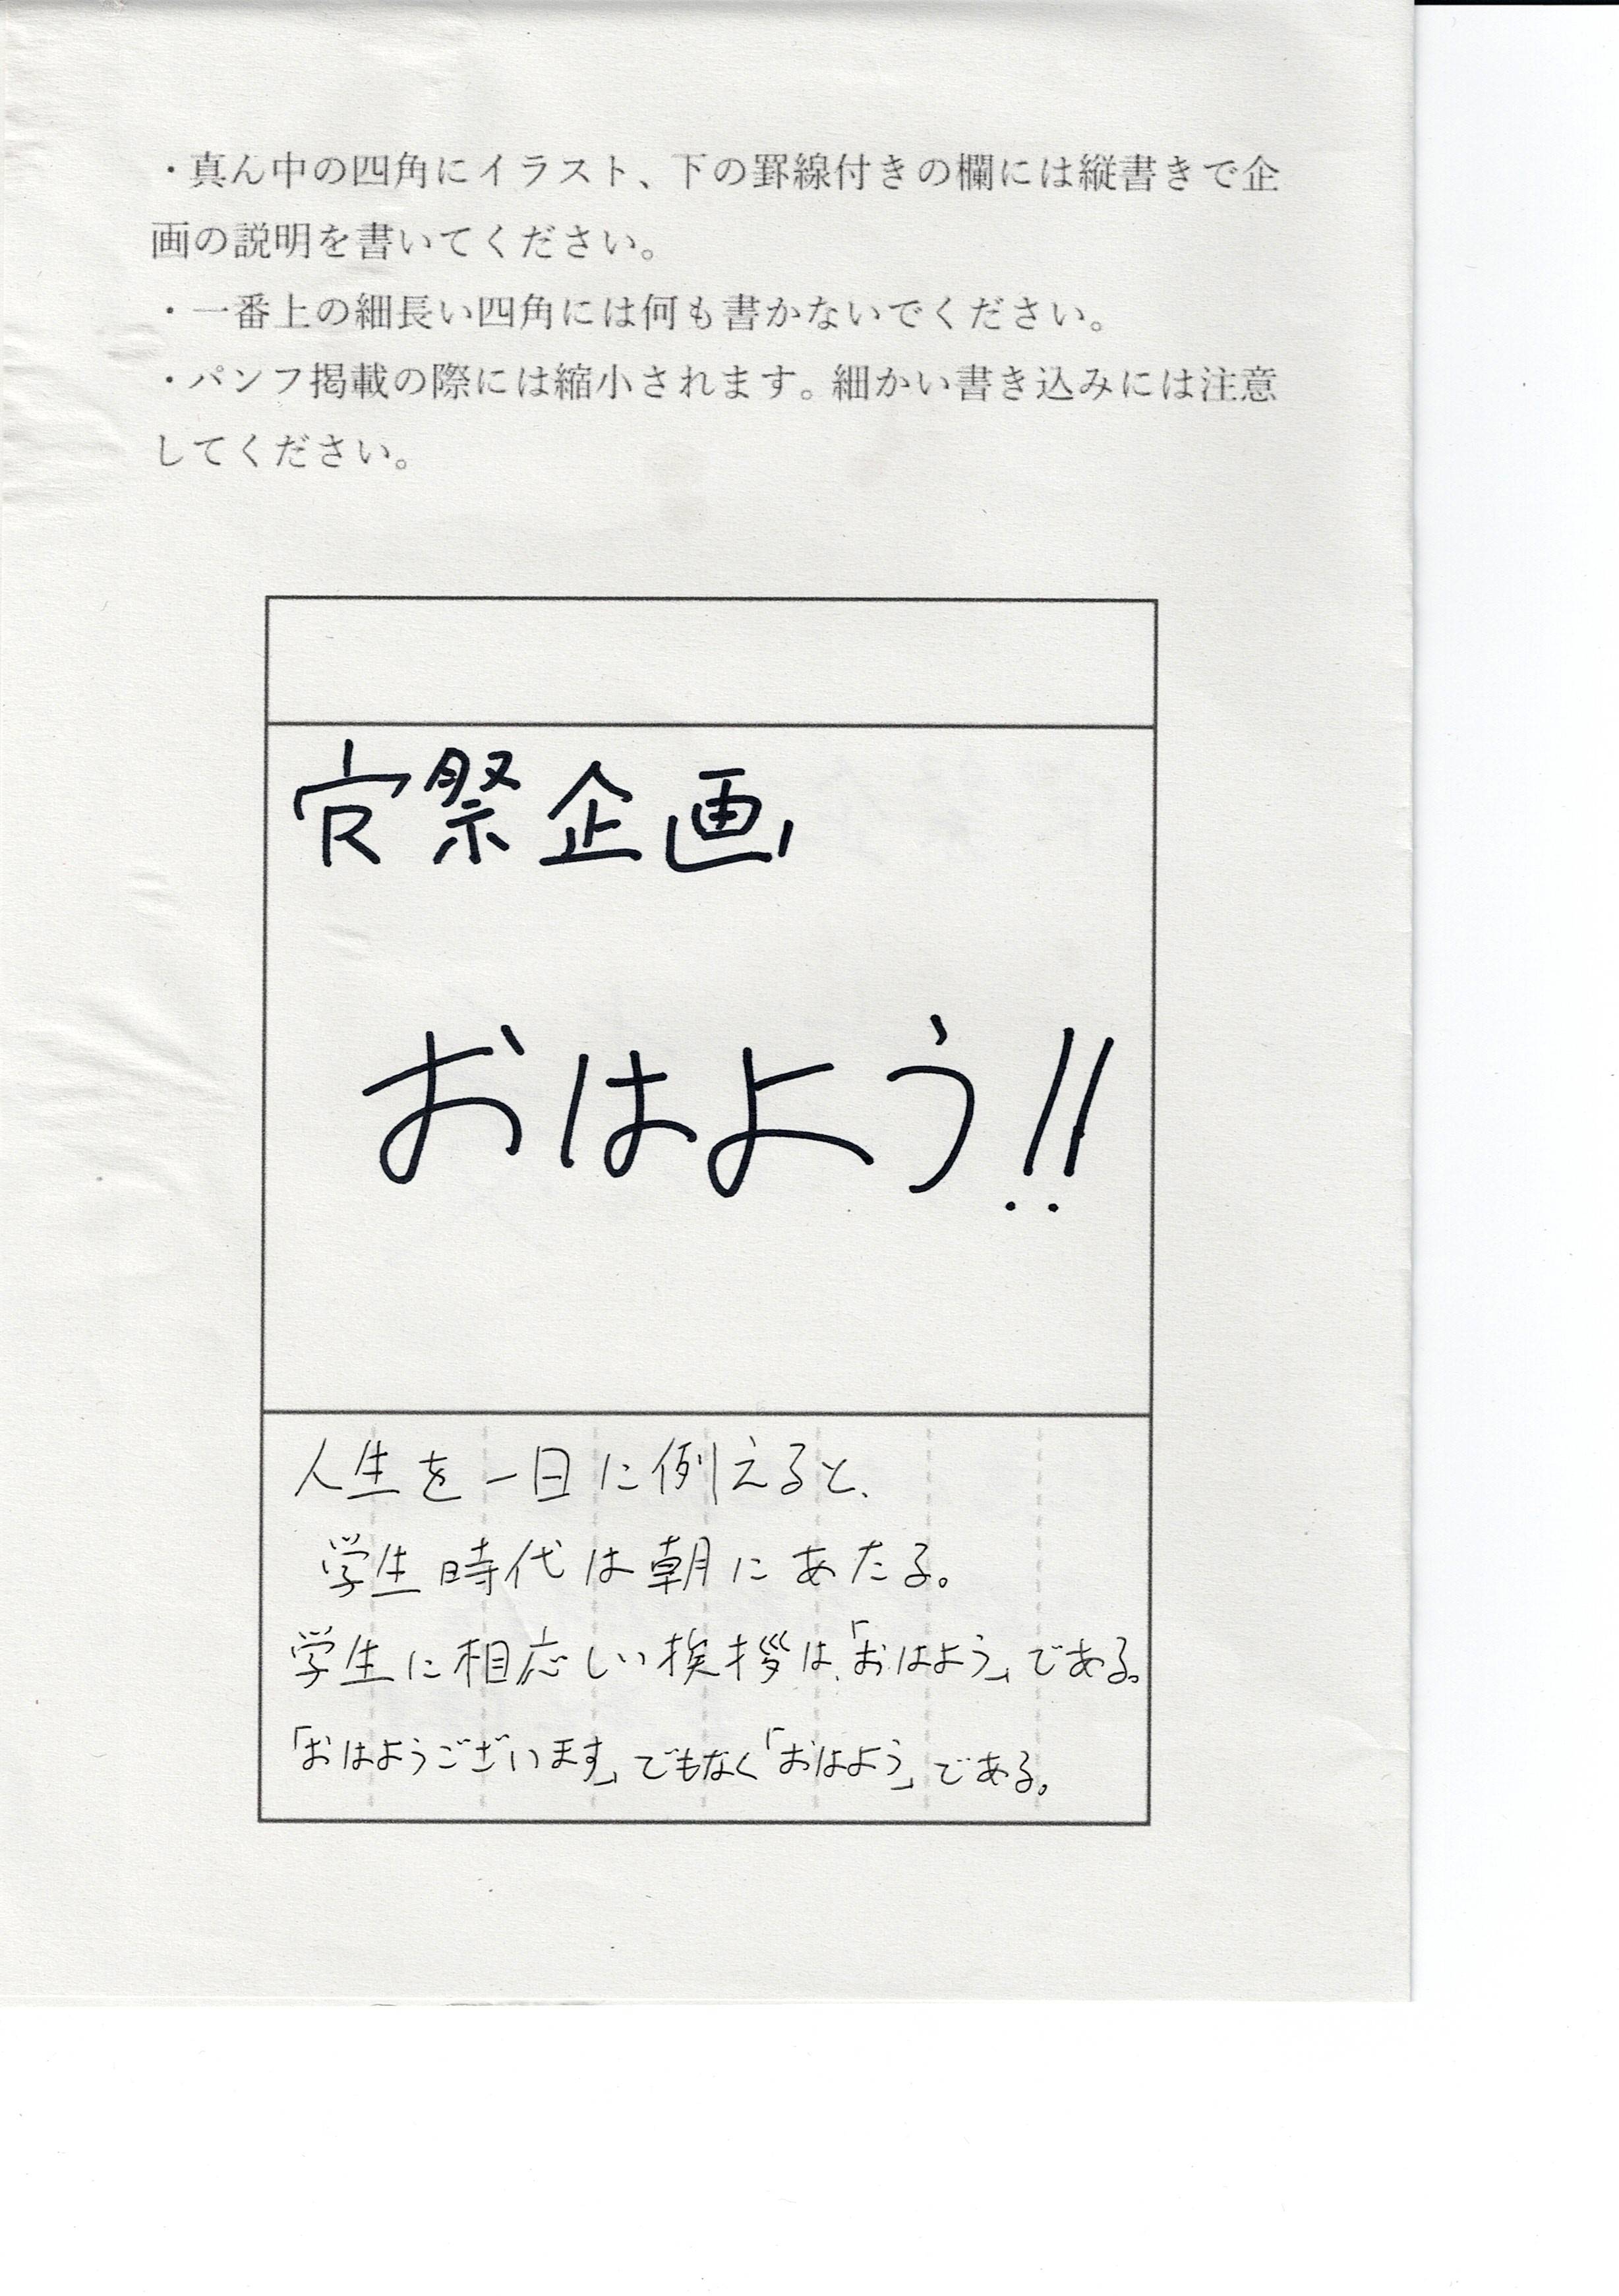 ・真ん中の四角にイラスト、下の罫線付きの欄には縦書きで企
画の説明を書いてください。
・一番上の細長い四角には何も書かないでください。
・パンフ掲載の際には縮小されます。細かい書き込みには注意
してください。
寮祭企画
おはよう!!
人生を一日に例えると、
学生時代は朝にあたる。
学生に相応しい挨拶は、「おはよう」である。
「おはようございます」でもなく「おはよう」である。